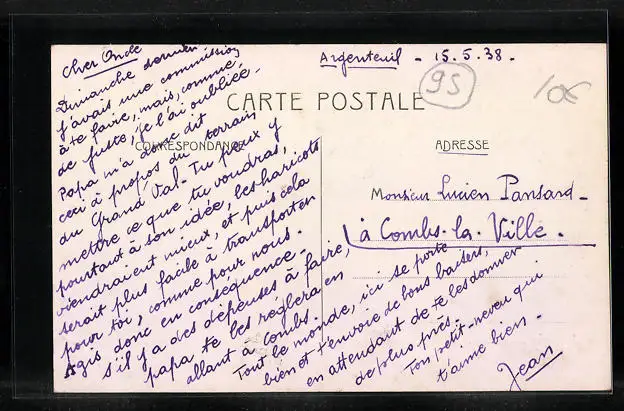 Argenteuil - 15.5.38 -
95
10€
CARTE POSTALE
CORRESPONDANCE
ADRESSE
Monsieur Lucien Pansard -
à Combs-la-Ville.
Cher Oncle
Dimanche dernier
j'avais une commission
à te faire, mais, comme
de juste, je l'ai oubliée.
Papa m'a donc dit
ceci à propos du terrain
du Grand Val. Tu peux y
mettre ce que tu voudras,
pourtant à son idée, les haricots
viendraient mieux, et puis cela
serait plus facile à transporter
pour toi, comme pour nous.
Agis donc en conséquence -
s'il y a des dépenses à faire,
papa te les réglera en
allant à Combs.
Tout le monde, ici se porte
bien et t'envoie de bons baisers,
en attendant de te les donner
de plus près.
Ton petit-neveu qui
t'aime bien -
Jean